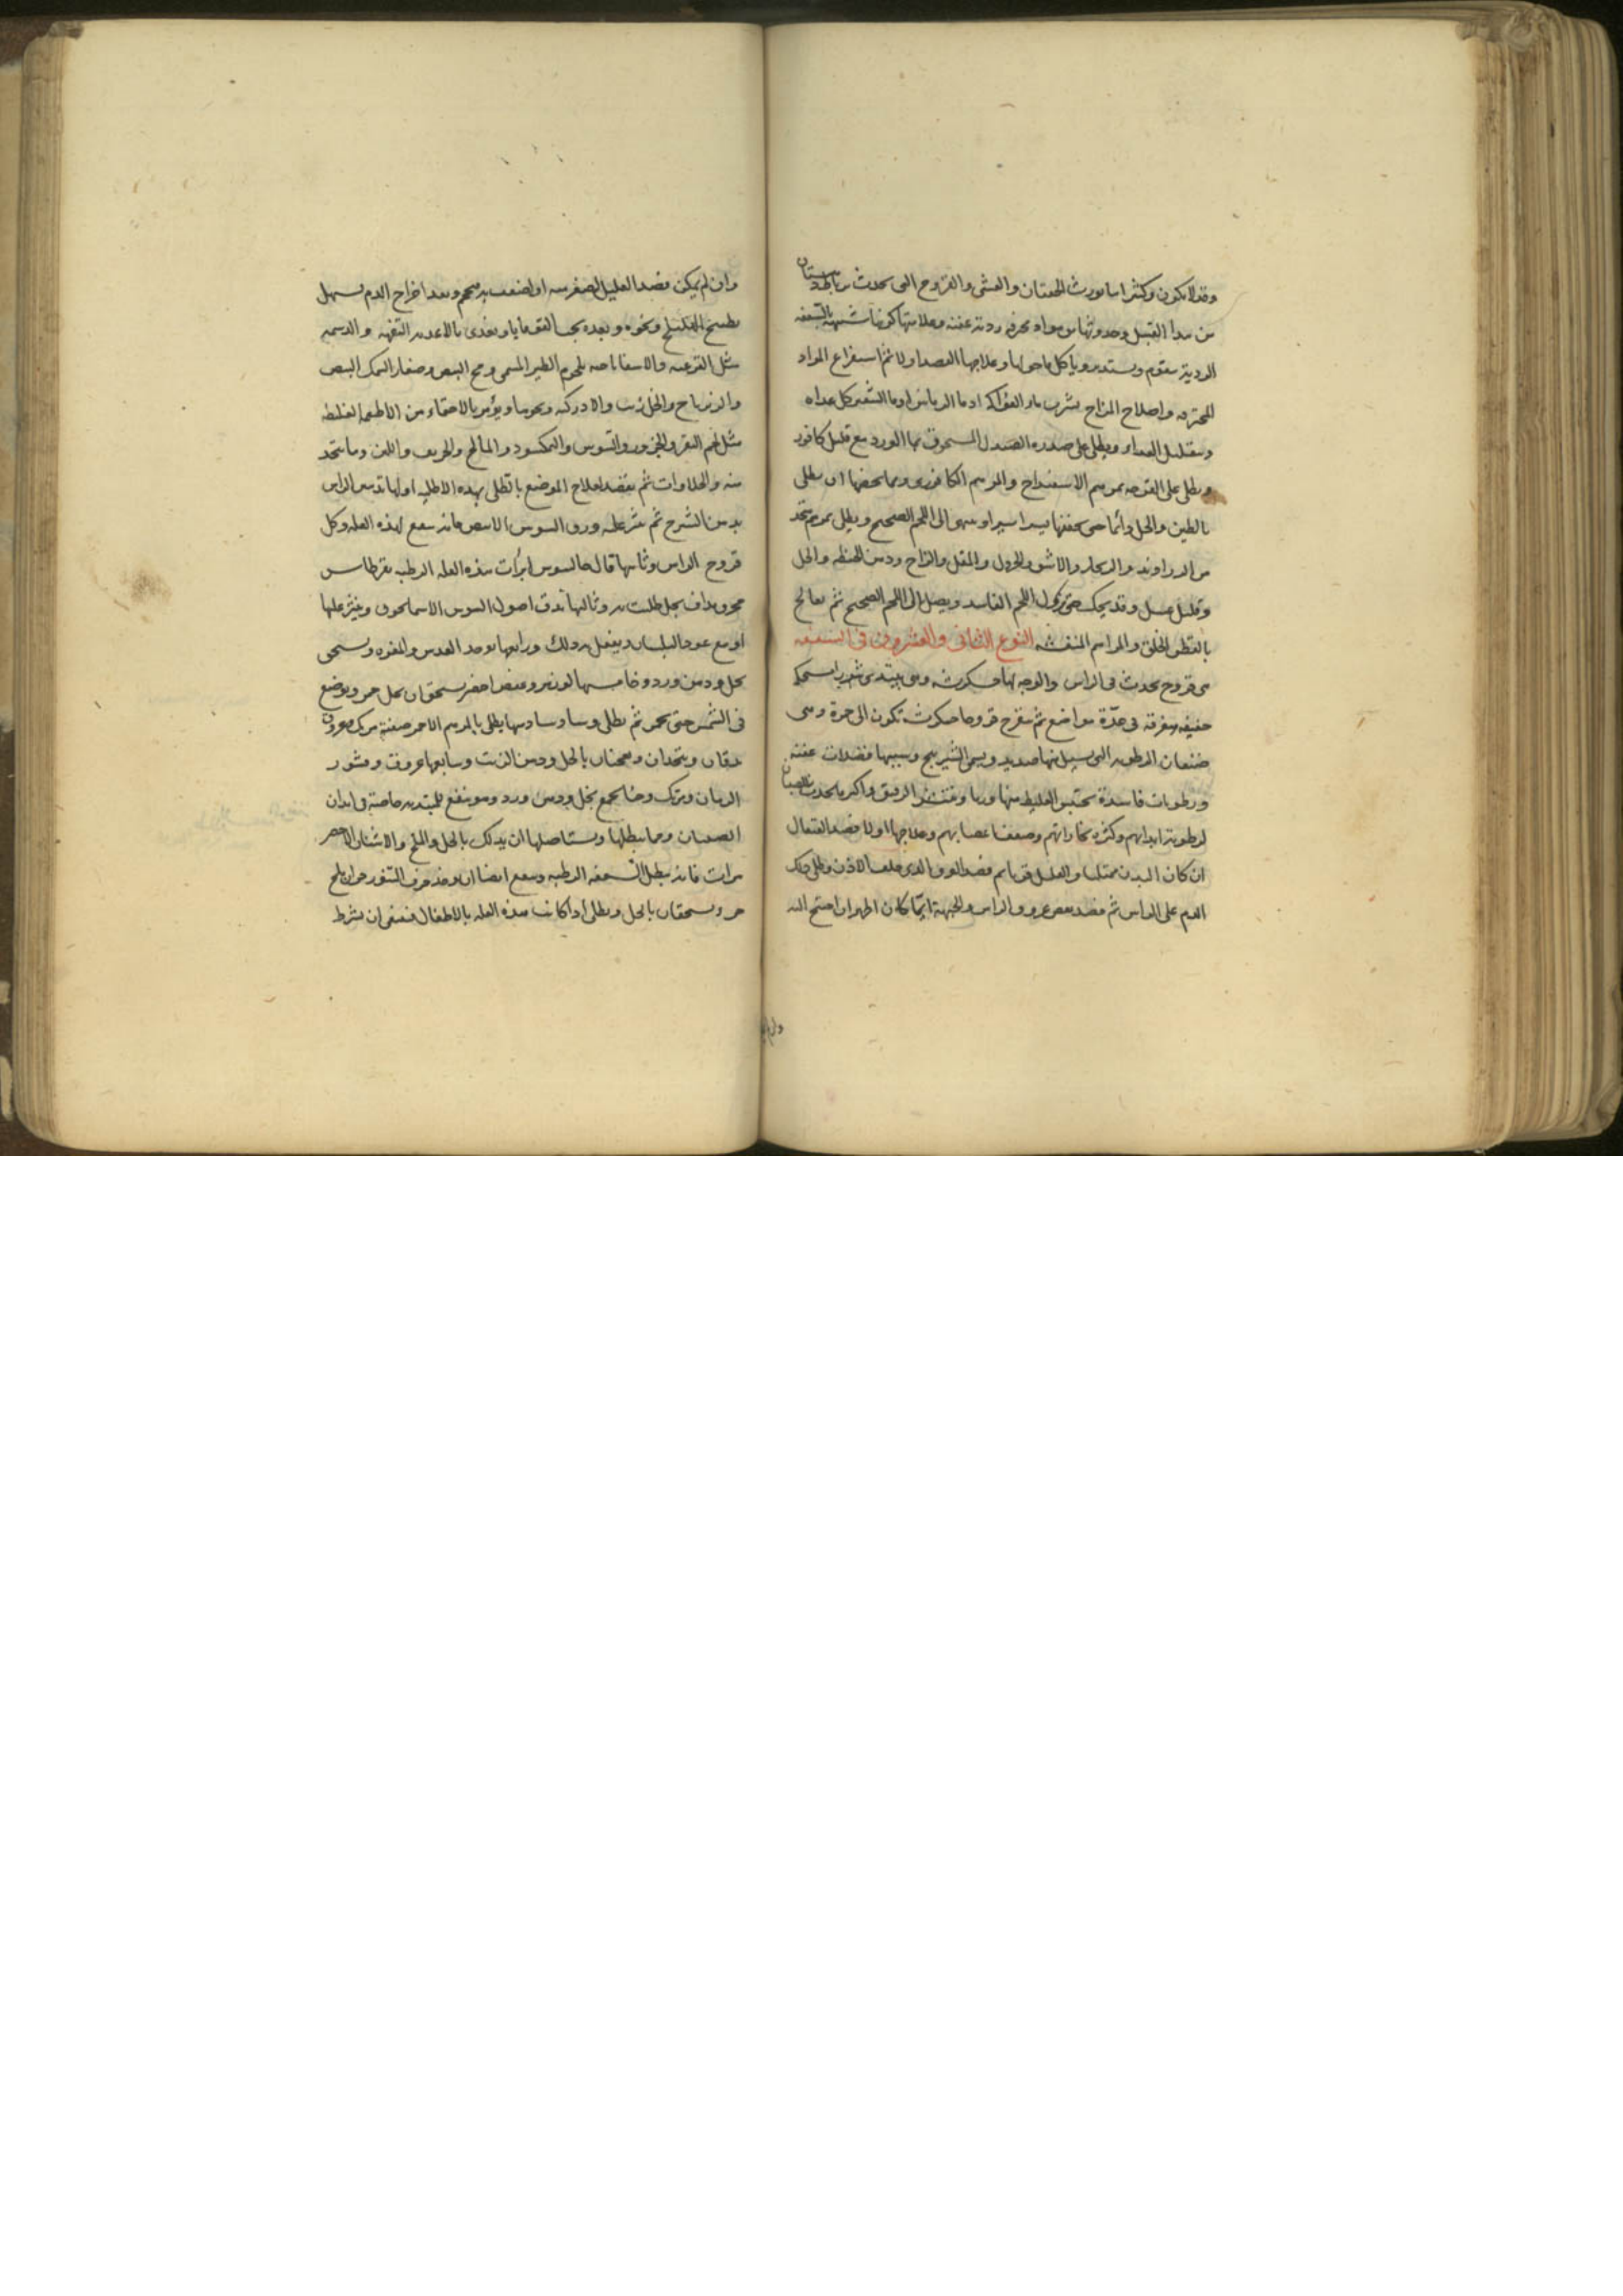 وقد لا تكون وكثيرا ما يورث الخفقان والغشي والقروح التي تحدث بربطة بستان
من هذا القبيل وحدوثها من مواد محرقه ردية عفنه وعلامتها كونها شبيهة بالسعفه
الردية متقوم ومستدير ويأكل ما حولها وعلاجها الفصد اولا ثم استفراغ المواد
المحترقه واصلاح المزاج بشرب ماء الفواكه او ماء الرمانين او ماء الشعير كل غداه
وبتقليل الغداء ويطلى على صدره الصندل المسحوق بماء الورد مع قليل كافور
ويطلى على القرحه بمرهم الاسفيداج والمرهم الكافوري ومما يخصها ان يطلى
بالطين والخل دائما حتى يجففها يسيرا يسيرا وينتهي الى اللحم الصحيح ويطلى بمرهم يتخذ
من الزراوند والزنجار والاشق والخردل والمقل والزاج ودهن الحنطه والخل
وقليل عسل وقد يحك حتى يزول اللحم الفاسد ويصل الى اللحم الصحيح ثم يعالج
بالقطن الخلق والمراهم المنقشه النوع الثاني والعشرون في السعفه
هي قروح تحدث في الراس والوجه لها خشكريشه وهي يبتدي بثورا مستحكه
خفيفه متفرقه في عدة مواضع ثم يتقرح قروحا خشكريشه تكون الى حمرة وهي
صنفان الرطبه التي يسيل منها صديد ويسمى الشيرينج وسببها فضلات عفنه
ورطوبات فاسدة يحتبس الغليظ منها وربا وينتشر الرقيق واكثر ما يحدث بالصبيان
لرطوبة ابدانهم وكثرة بخاراتهم وضعف اعصابهم وعلاجها اولا فصد القيفال
ان كان البدن ممتليا والعليل قويا ثم فصد العرق الذي خلف الاذن وطلى ذلك
الدم على الراس ثم فصد بعض عروق الراس والجبهة ايما كان اظهر ان احتيج اليه
وان لم يمكن فصد العليل لصغر سنه او لضعف به يحجم وبعد اخراج الدم يسهل
بطبيخ الهليلج ونحوه وبعده بحب القوقايا ويغذى بالاغذية التفهه والدسمه
مثل القرعيه والاسفاناخيه بلحوم الطير المسمن ومح البيض وصغار السمك البيض
والزيرباج والخل زيت والادركيه ونحوها ويؤمر بالاحتماء من الاطعمه الغليظه
مثل لحم البقر والجزور والتيوس والنمكسود والمالح والحريف واللبن وما يتخذ
منه والحلاوات ثم يقصد لعلاج الموضع بان تطلى بهذه الاطليه اولها تدهين الراس
بدهن الشيرج ثم ينثر عليه ورق السوس الابيض فانه ينفع لهذه العله وكل
قروح الراس وثانيها قال جالينوس ابرأت هذه العله الرطبه بقرطاس
محرق مداف بخل طليت به وثالثها تدق اصول السوس الاسمانجوني وينثر عليها
او مع عود البلسان ويفعل به ذلك ورابعها يوخذ العدس والمغره ويسحق
بخل ودهن ورد وخامسها لوز مر وعفص اخضر يسحقان بخل خمر ويوضع
في الشمس حتى يحمر ثم يطلى وسادسها يطلى بالمرهم الاحمر صفته مرتك وعروق
يدقان وينخلان ويعجنان بالخل ودهن الزيت وسابعها عروق وقشور
الرمان ومرتك وحنا يجمع بخل ودهن ورد وهو ينفع للمبتديه خاصة في ابدان
الصبيان ومما يبطلها ويستاصلها ان يدلك بالخل والملح والاشنان الاخضر
مرات فانه يبطل السعفه الرطبه وينفع ايضا ان يوخذ خزف التنور جزء ان ملح
جزء يسحقان بالخل ويطلى اذا كانت هذه العله بالاطفال فينبغي ان يشرط